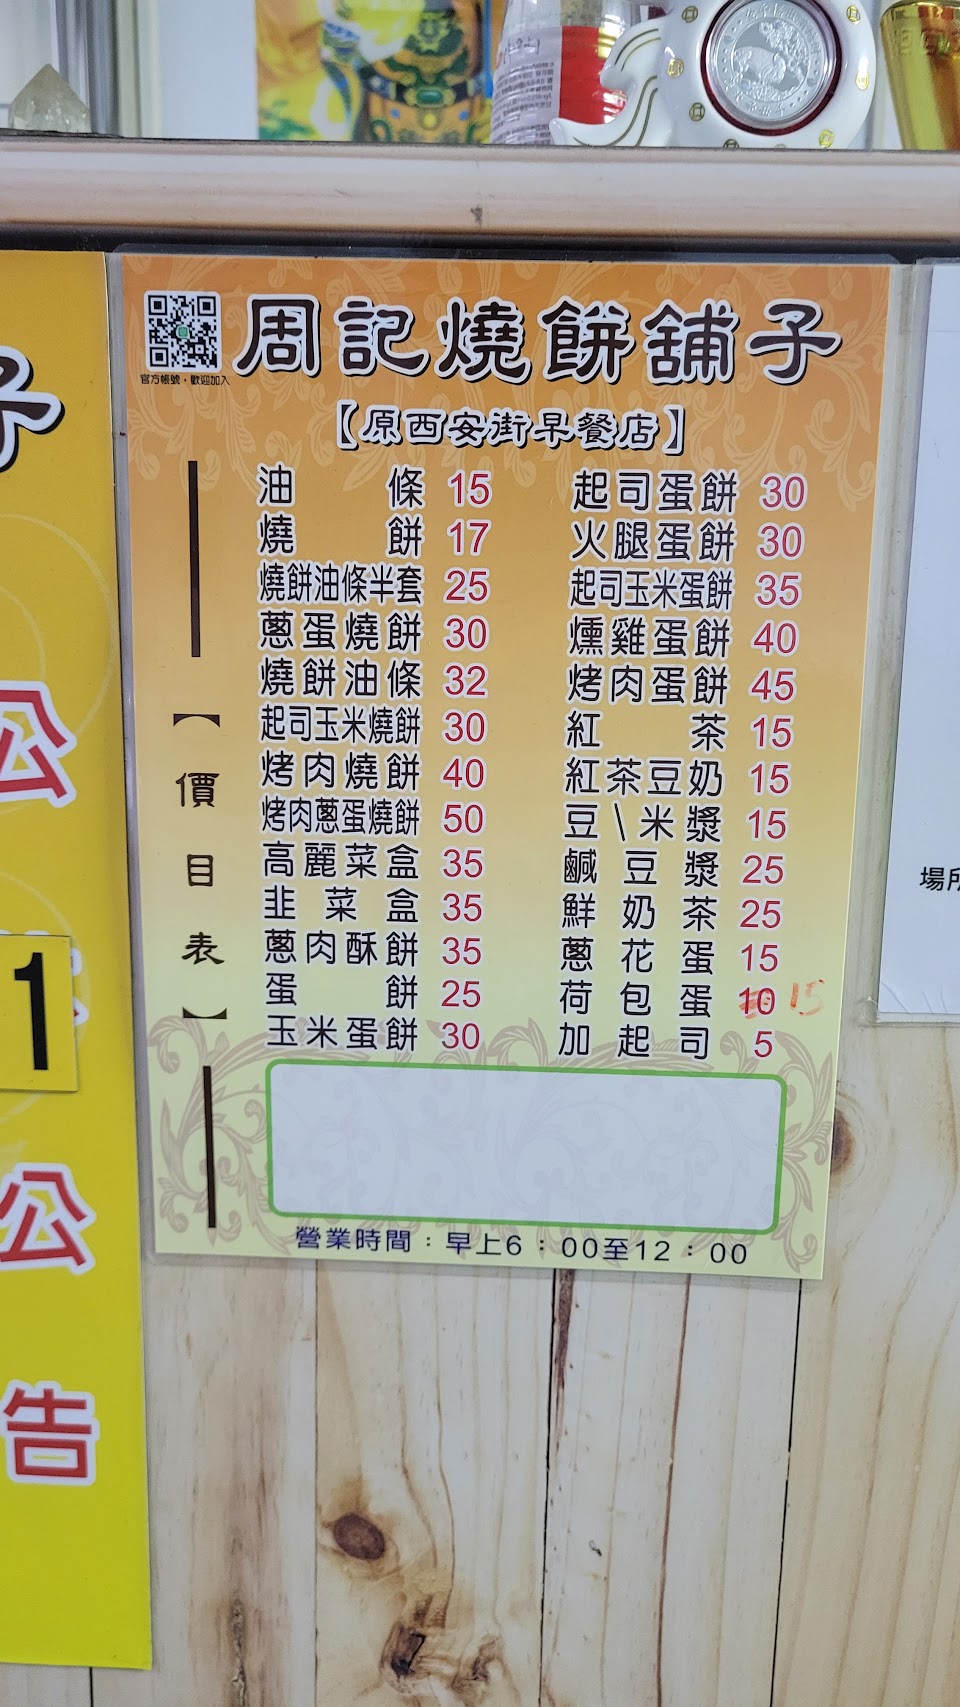 周記燒餅舖子
官方帳號，歡迎加入
【原西安街早餐店】
【價目表】
油條 15
燒餅 17
燒餅油條半套 25
蔥蛋燒餅 30
燒餅油條 32
起司玉米燒餅 30
烤肉燒餅 40
烤肉蔥蛋燒餅 50
高麗菜盒 35
韭菜盒 35
蔥肉酥餅 35
蛋餅 25
玉米蛋餅 30
起司蛋餅 30
火腿蛋餅 30
起司玉米蛋餅 35
燻雞蛋餅 40
烤肉蛋餅 45
紅茶 15
紅茶豆奶 15
豆\米漿 15
鹹豆漿 25
鮮奶茶 25
蔥花蛋 15
荷包蛋 10 15
加起司 5
營業時間：早上6：00至12：00
子
公
1
公
告
場所